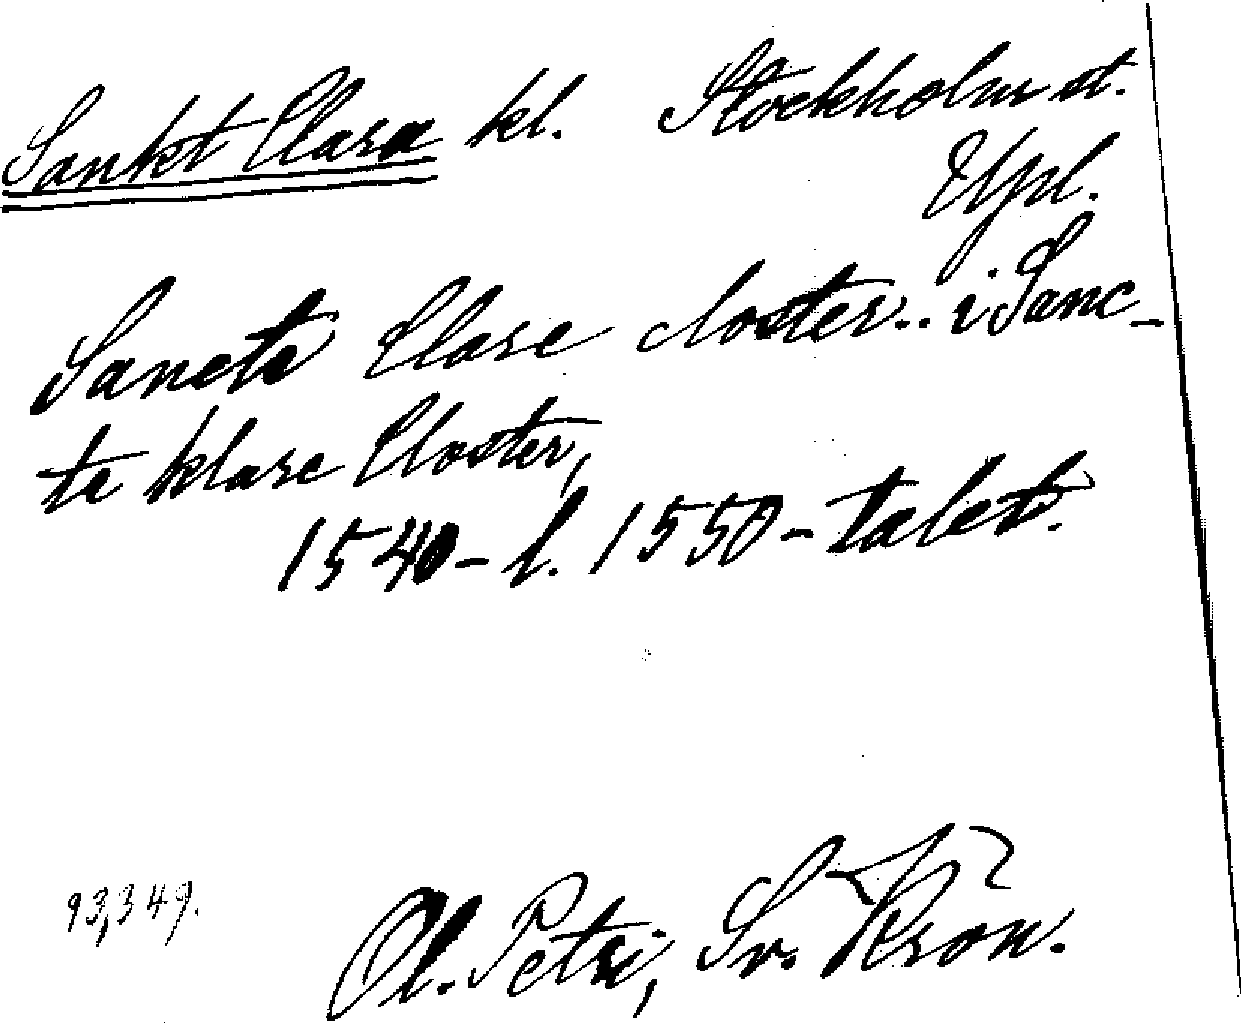 Sankt Clara kl. Stockholm st.
Upl.
Sancte Clare closter.. i Sanc-
te klare Closter,
1540- l. 1550-talet.
93,349.
Ol. Petri, Sv. Krön.